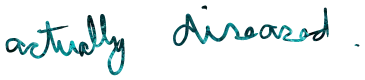 actually diseased.